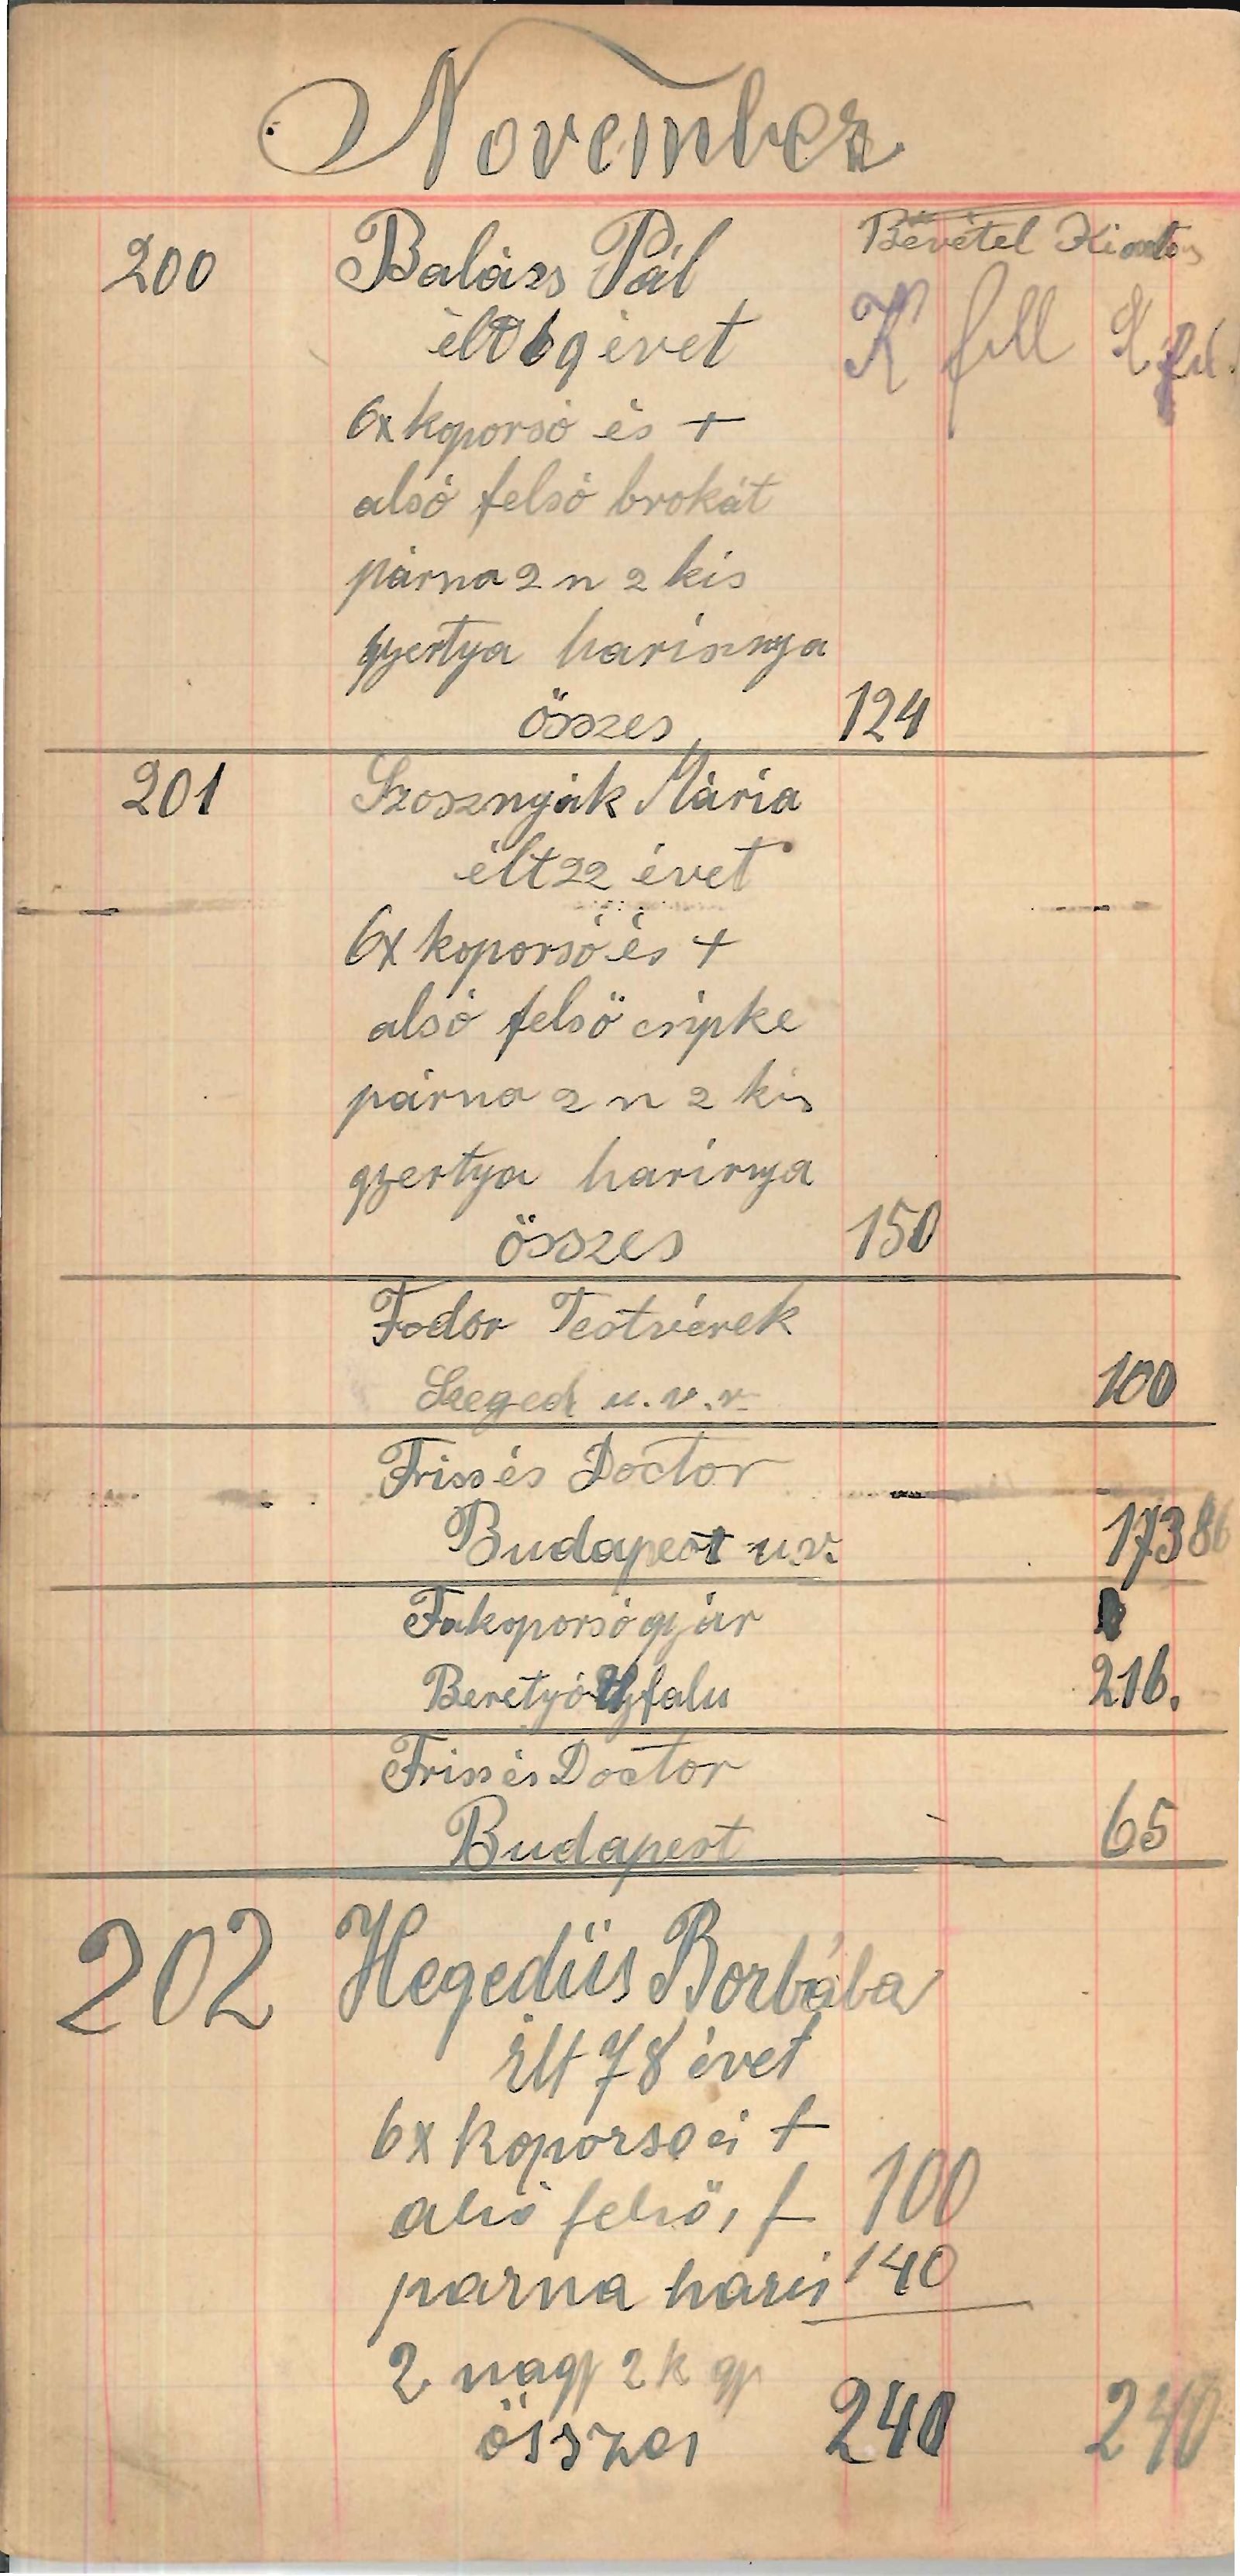 November
Bevétel Kiadás
200 Balázs Pál
K fill K fil.
élt 69 évet
6x koporsó és +
alsó felső brokát
párna 2 n 2 kis
gyertya harisnya
összes 124
201 Szosznyák Mária
élt 22 évet
6x koporsó és +
alsó felső csipke
párna 2 n 2 kis
gyertya harisnya
összes 150
Fodor Testvérek
Szeged u.v.r. 100
Friss és Doctor
Budapest u.v. 173 86
Fakoporsógyár
Berettyó Ujfalu 216.
Friss és Doctor
Budapest 65
202 Hegedüs Borbála
élt 78 évet
6x koporsó és +
alsó felső, f 100
parna haris 140
2 nagy 2 k gy
összes 240 240